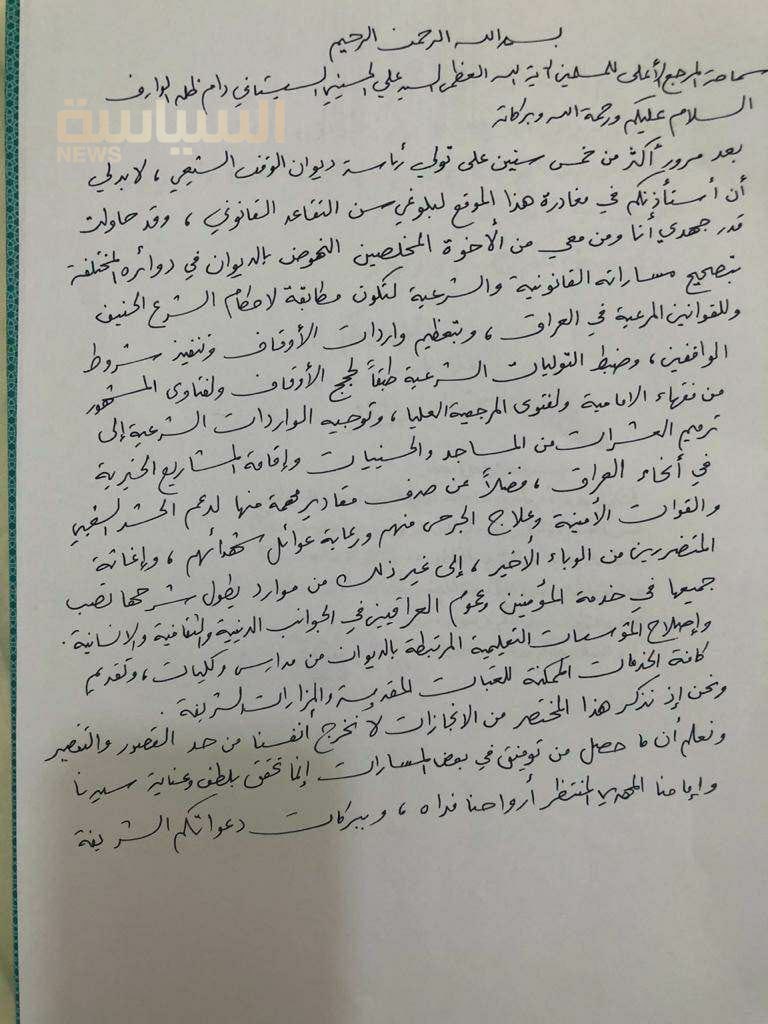 بسم الله الرحمن الرحيم
سماحة المرجع الأعلى للمسلمين آية الله العظمى السيد علي الحسيني السيستاني دام ظله الوارف
السلام عليكم ورحمة الله وبركاته
السياسة
NEWS
بعد مرور أكثر من خمس سنين على تولي رئاسة ديوان الوقف الشيعي ، لابد لي
أن أستأذنكم في مغادرة هذا الموقع لبلوغي سن التقاعد القانوني ، وقد حاولت
قدر جهدي أنا ومن معي من الأخوة المخلصين النهوض بالديوان في دوائره المختلفة
بتصحيح مساراته القانونية والشرعية لتكون مطابقة لاحكام الشرع الحنيف
وللقوانين المرعية في العراق ، وبتعظيم واردات الأوقاف وتنفيذ شروط
الواقفين ، وضبط التوليات الشرعية طبقاً لحجج الأوقاف ولفتاوى المشهور
من فقهاء الامامية ولفتوى المرجعية العليا ، وتوجيه الواردات الشرعية إلى
ترميم العشرات من المساجد والحسينيات وإقامة المشاريع الخيرية
في أنحاء العراق ، فضلاً عن صرف مقادير مهمة منها لدعم الحشد الشعبي
والقوات الأمنية وعلاج الجرحى منهم ورعاية عوائل شهدائهم ، وإغاثة
المتضررين من الوباء الأخير ، إلى غير ذلك من موارد يطول شرحها تصب
جميعها في خدمة المؤمنين وعموم العراقيين في الجوانب الدينية والثقافية والانسانية .
وإصلاح المؤسسات التعليمية المرتبطة بالديوان من مدارس وكليات ، وتقديم
كافة الخدمات الممكنة للعتبات المقدسة والمزارات الشريفة .
ونحن إذ نذكر هذا المختصر من الانجازات لا نخرج أنفسنا من حد القصور والتقصير
ونعلم أن ما حصل من توفيق في بعض المسارات إنما تحقق بلطف وعناية سيدنا
وإمامنا المهدي المنتظر أرواحنا فداه ، وببركات دعواتكم الشريفة